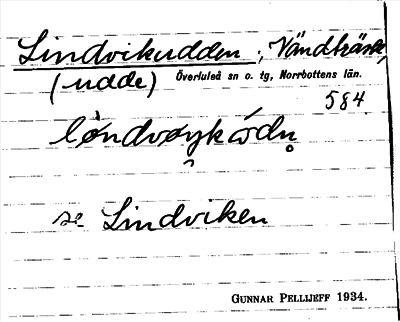 Lindvikudden, Vändträsk,
(udde) Överluleå sn o. tg, Norrbottens län.
584
se Lindviken
GUNNAR PELLIJEFF 1934.